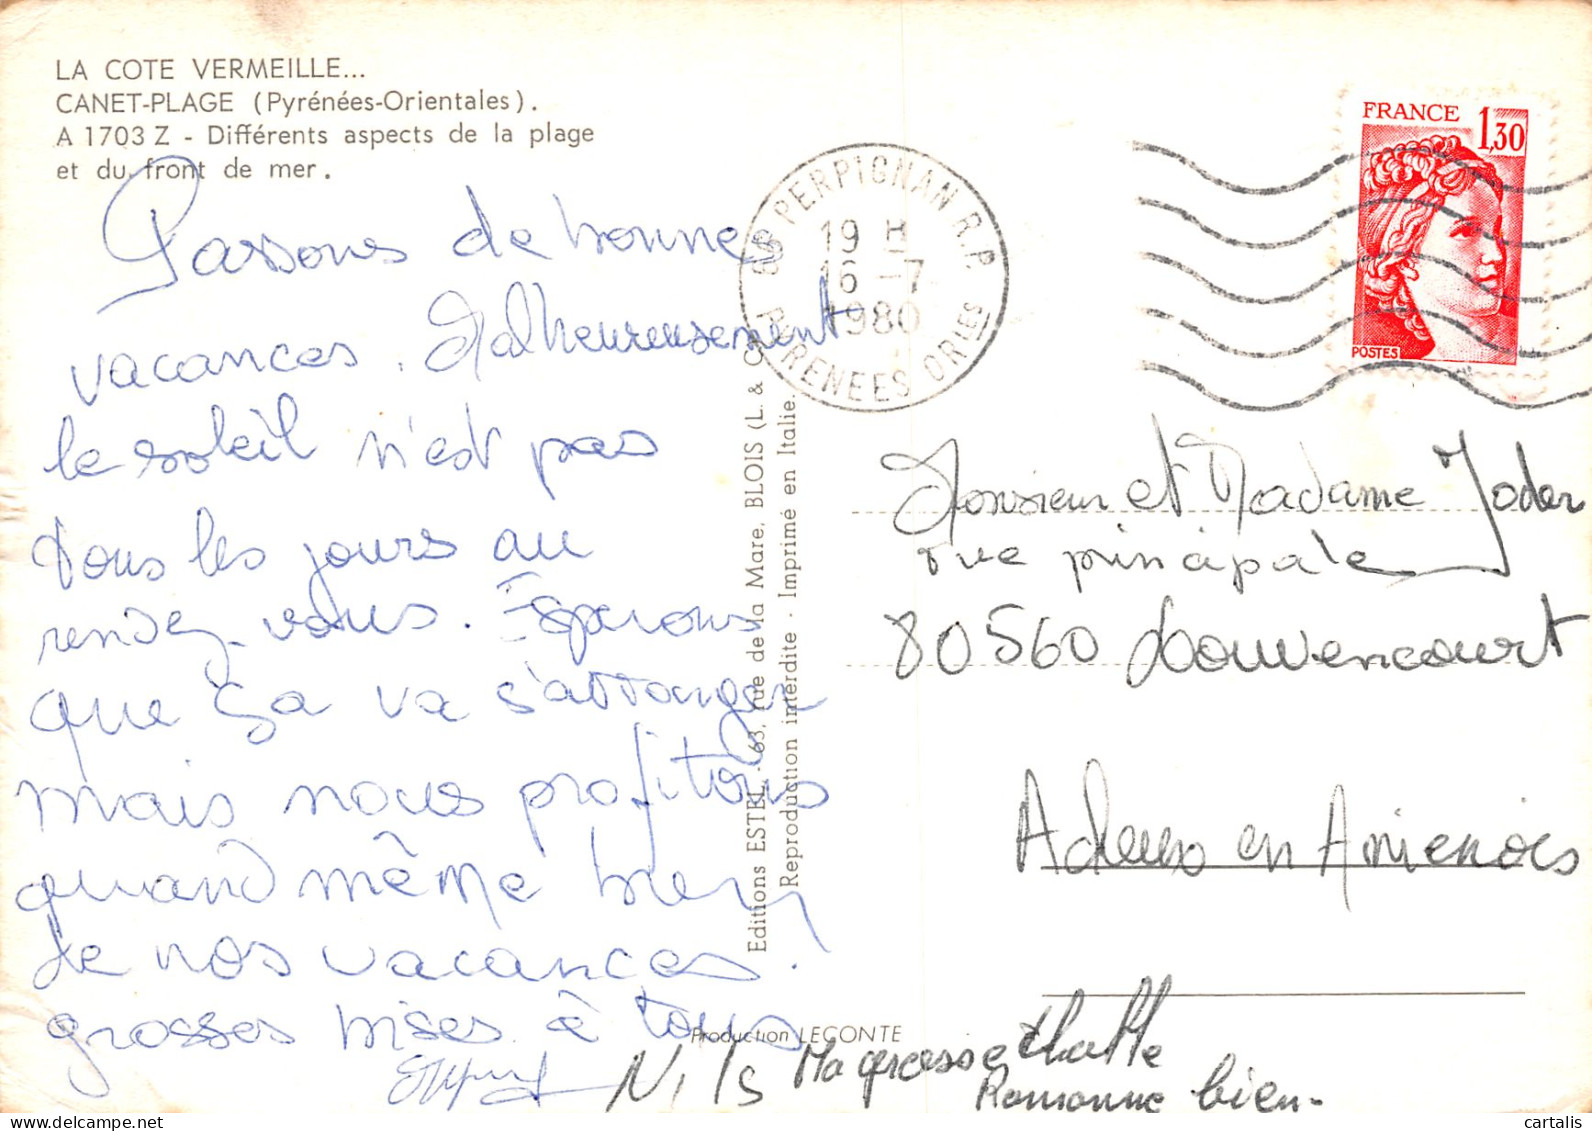 LA COTE VERMEILLE...
CANET-PLAGE (Pyrénées-Orientales).
A 1703 Z - Différents aspects de la plage
et du front de mer.
Passons de bonnes
vacances. Malheureusement
le soleil n'est pas
tous les jours au
rendez-vous. Espérons
que ça va s'arranger
mais nous profitons
quand même bien
de nos vacances.
grosses bises à tous
Nils
Ma grosse
Ronronne bien-
Editions ESTEL - 63, rue de la Mare, BLOIS (L. & C.)
Reproduction interdite - Imprimé en Italie.
Production LECONTE
66 PERPIGNAN R.P.
19 H
16-7
1980
PYRENEES ORIES
FRANCE 1,30
POSTES
Monsieur et Madame Joder
rue principale
80560 Louvencourt
en Amienois
cartalis